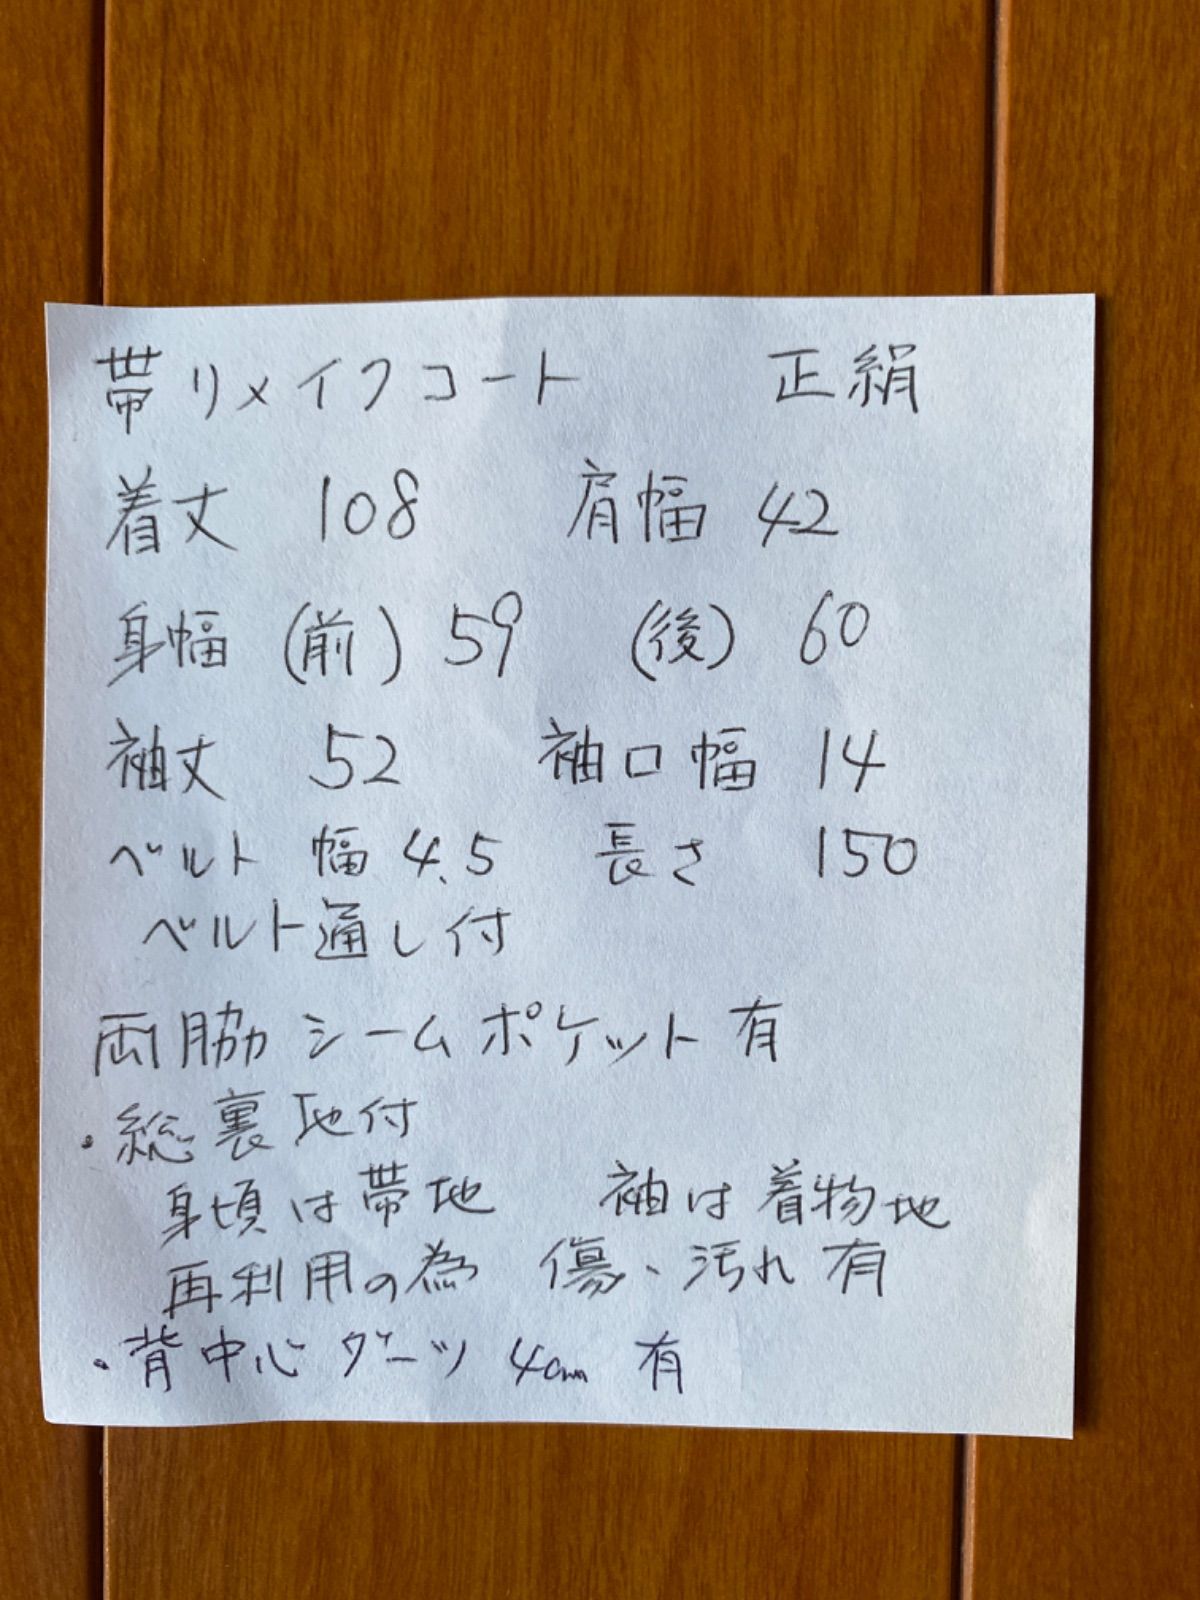 帯リメイクコート 正絹
着丈 108 肩幅 42
身幅 (前) 59 (後) 60
袖丈 52 袖口幅 14
ベルト 幅 4.5 長さ 150
ベルト通し付
両脇 シームポケット 有
・総裏地付
身頃は帯地 袖は着物地
再利用の為 傷、汚れ有
・背中心ダーツ 4cm 有